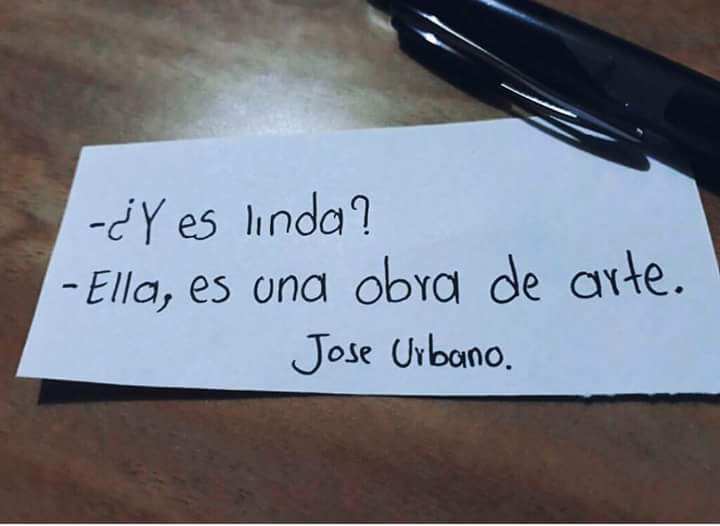 -¿Y es linda?
-Ella, es una obra de arte.
Jose Urbano.